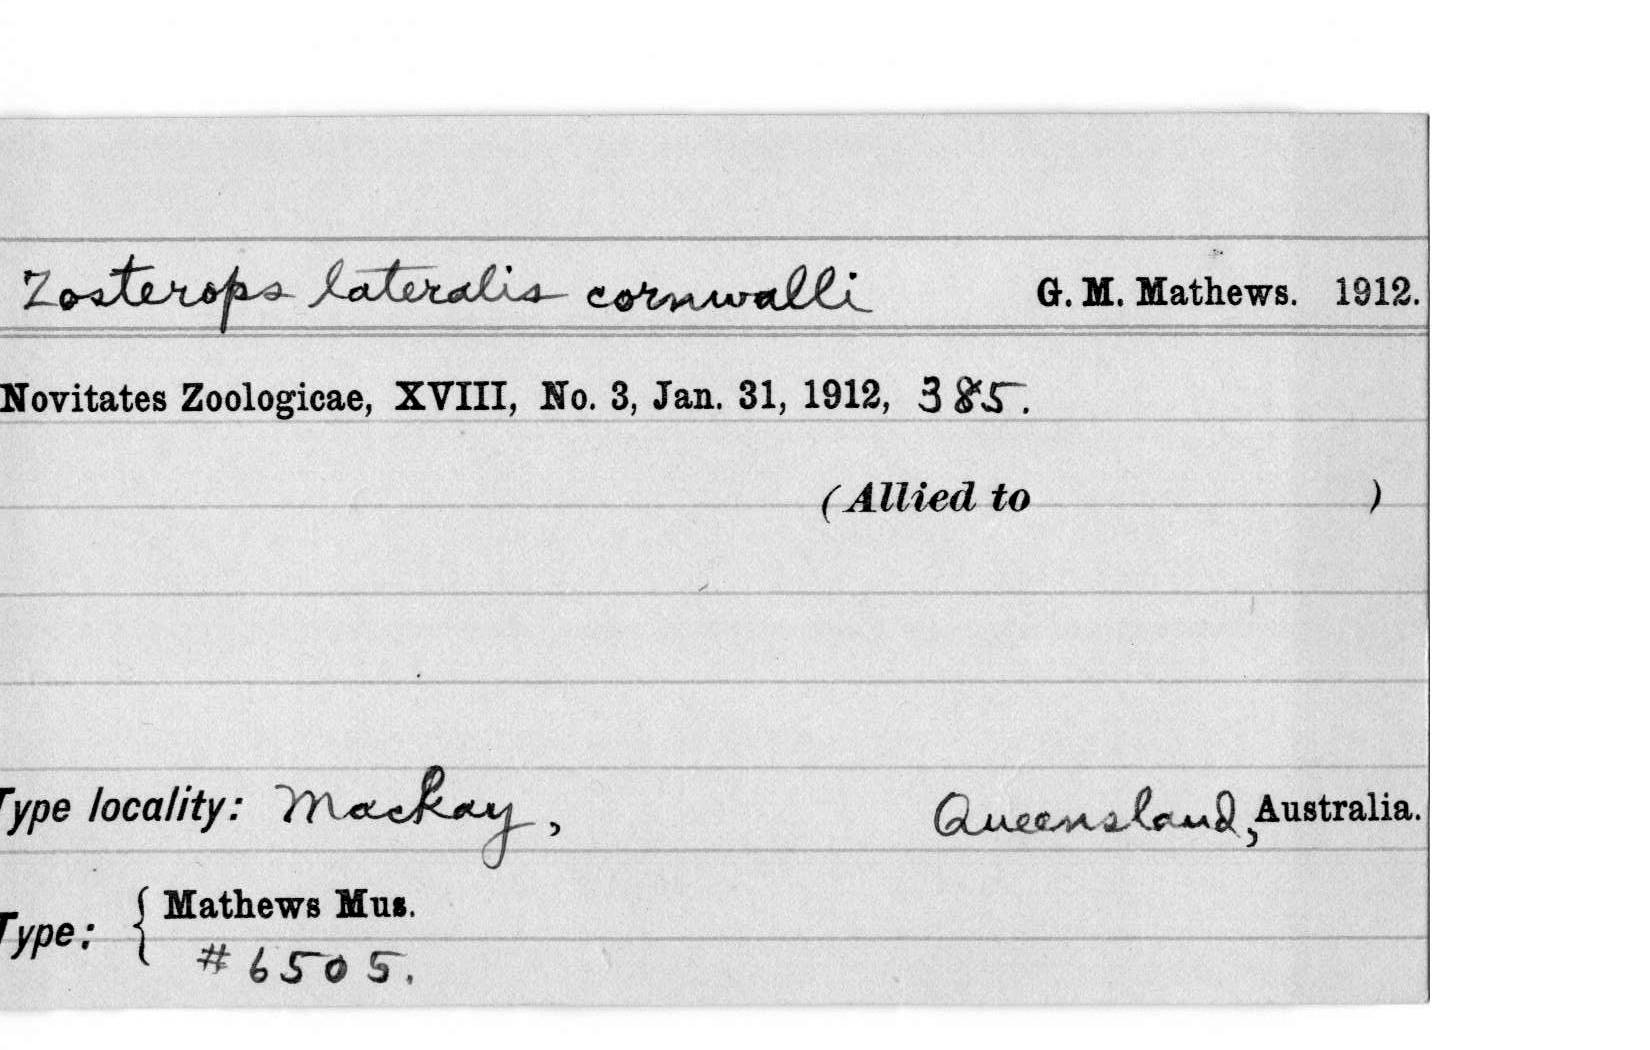 Zosterops lateralis cornwalli G. M. Mathews. 1912.
Novitates Zoologicae, XVIII, No. 3, Jan. 31, 1912, 385.
(Allied to )
Type locality: Mackay, Queensland, Australia.
Type: { Mathews Mus.
#6505.